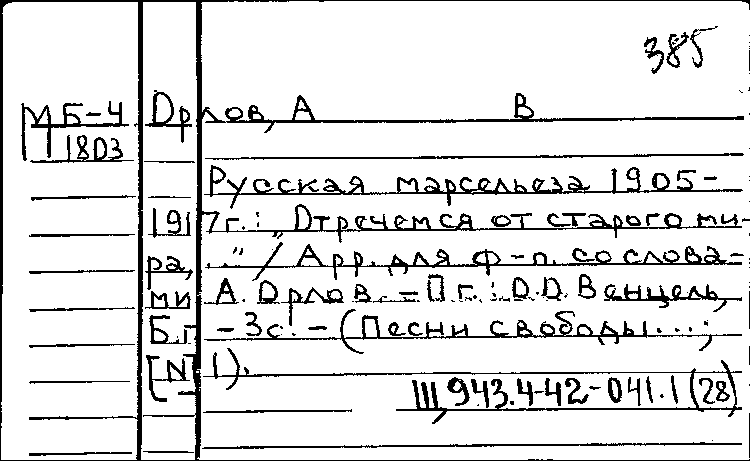 385
МБ-4 Орлов, А В
1803
Русская марсельеза 1905-
1917г.: „Отречемся от старого ми-
ра, ..." / Арр. для ф-п. со слова-
ми А. Орлов. - Пг.: О.О. Венцель,
Б.г. - 3с. - (Песни свободы...;
[N] 1).
III, 943.4-42-041.1(28)